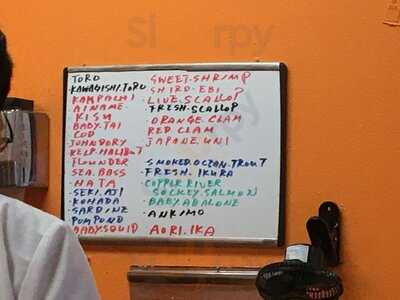 TORO
·KAWAGISHI.TORO
KAMPACHI
·AINAME·
·KISU
·BABY.TAI
COD
·JOHNDORY
·KELP.HALIBUT
FLOUNDER
·SEA.BASS
·HATA
·SEKI.AJI
·KOHADA
·SARDINE
POMPONO
·BABYSQUID
SWEET.SHRIMP
SHIRO.EBI
LIVE.SCALLOP
·FRESH.SCALLOP
·ORANGE.CLAM
RED CLAM
JAPANE.UNI
·SMOKED.OCEAN.TROUT
·FRESH.IKURA
·COPPER RIVER
SOCKEY.SALMON
·BABY.ABALONE
·ANKIMO
AORI.IKA